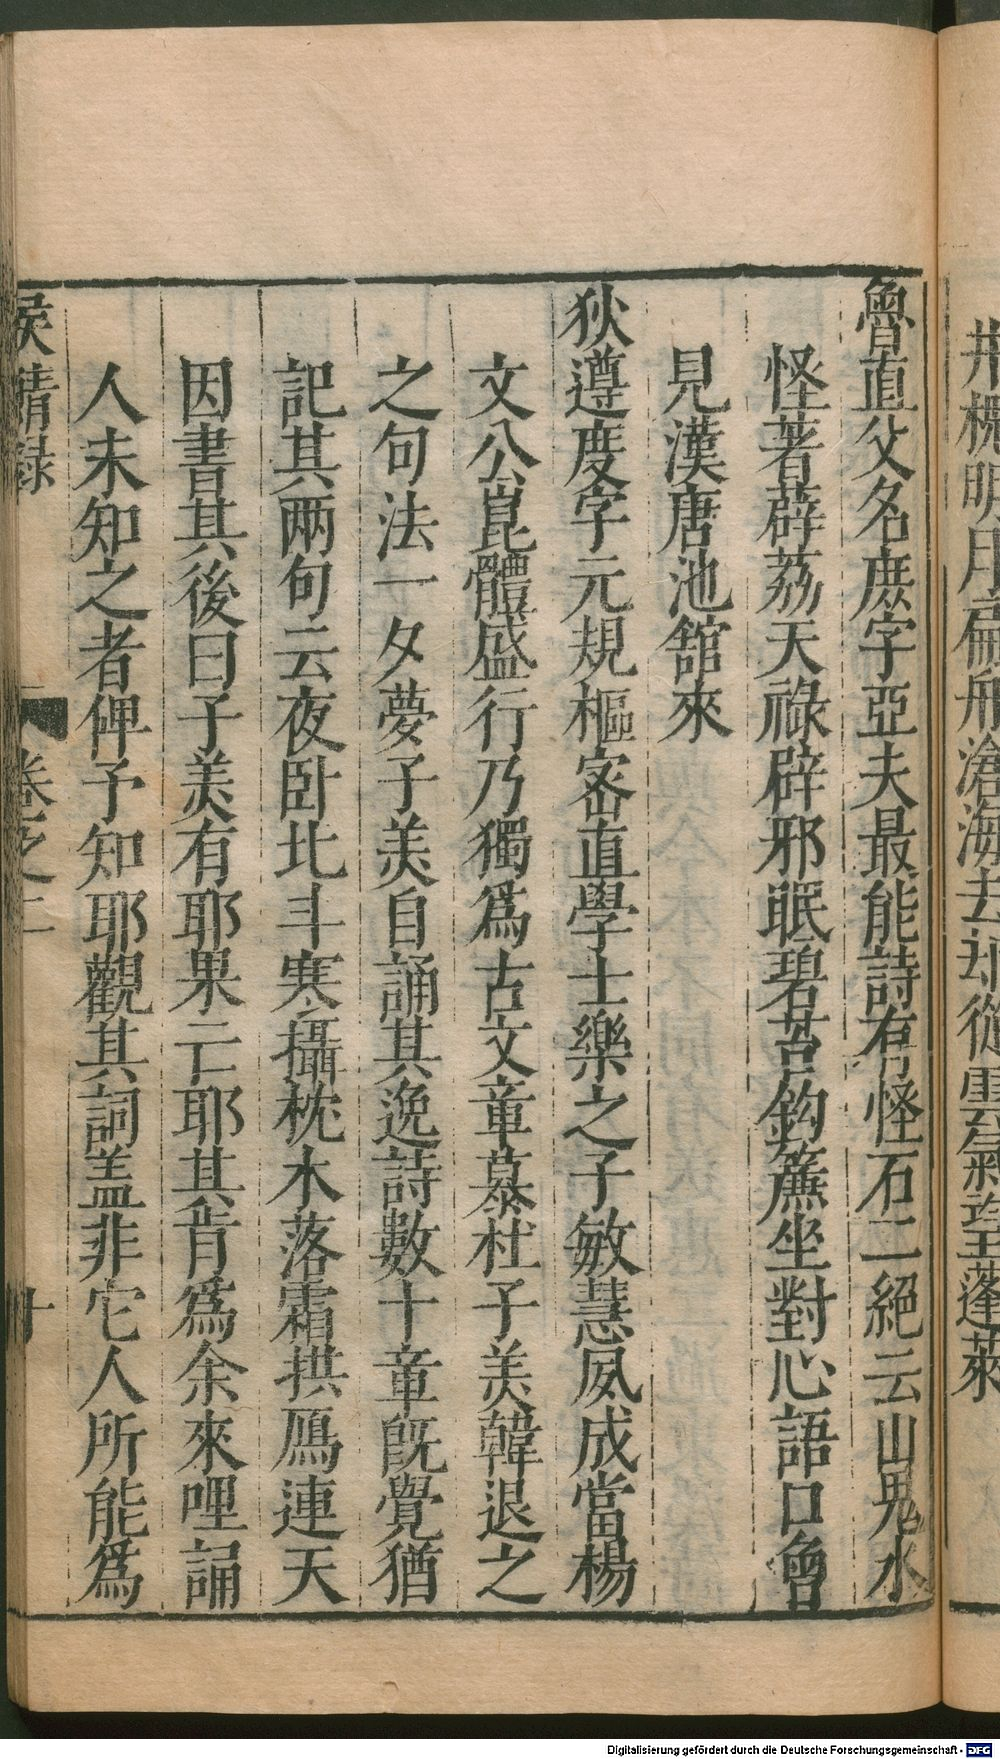 荆槐明月扁舟滄海去却從雲氣望蓬萊
魯直父名庶字亞夫最能詩有怪石二絕云山鬼水
怪著薜荔天祿辟邪眠碧苔鈎簾坐對心語口曾
見漢唐池舘來
狄遵度字元規樞密直學士樂之子敏慧夙成當楊
文公崑體盛行乃獨爲古文章慕杜子美韓退之
之句法一夕夢子美自誦其逸詩數十章旣覺猶
記其兩句云夜卧北斗寒攝枕木落霜拱鴈連天
因書其後曰子美有耶果亡耶其肯爲余來哩誦
人未知之者俾予知耶觀其詞盖非它人所能爲
侯鯖錄
卷之二
十
Digitalisierung gefördert durch die Deutsche Forschungsgemeinschaft - DFG